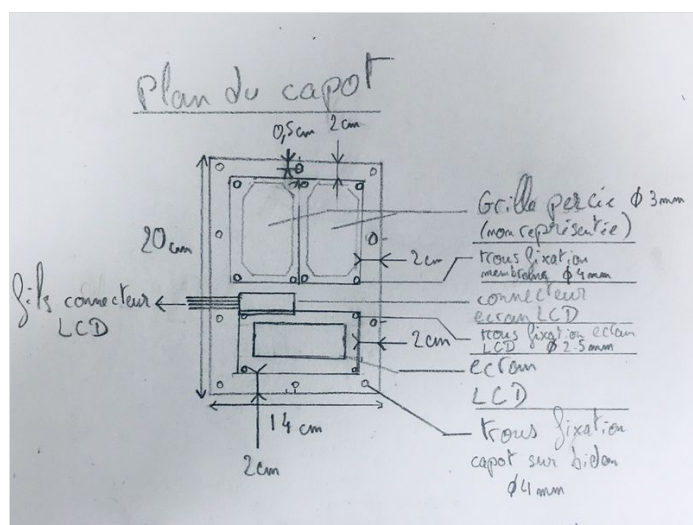 Plan du capot
0,5cm
2cm
Grille percée ϕ 3mm
(non représentée)
20 cm
2cm
trous fixation
membrane ϕ 4mm
fils connecteur
LCD
connecteur
ecran LCD
trous fixation ecran
LCD ϕ 2.5mm
2cm
ecran
LCD
14 cm
trous fixation
capot sur bidon
ϕ4mm
2cm